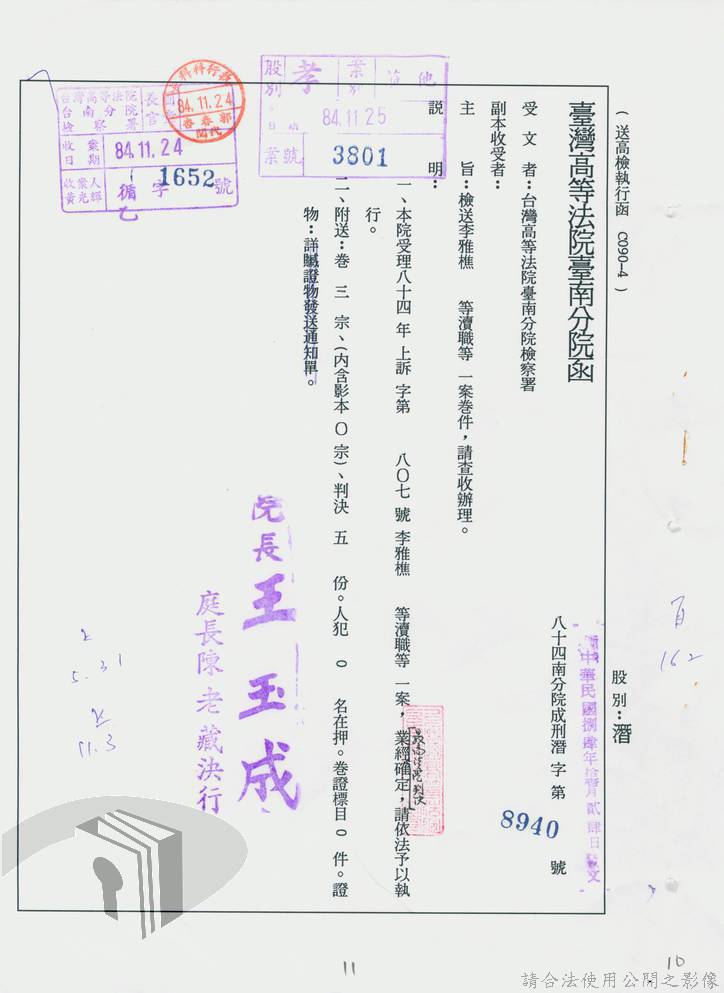 (送高檢執行函 C090-4)
股別：潛
臺灣高等法院臺南分院函
中華民國捌肆年拾壹月貳肆日發文
八十四南分院成刑潛字第 8940 號
受文者：台灣高等法院臺南分院檢察署
副本收受者：
主旨：檢送李雅樵 等瀆職等一案卷件，請查收辦理。
說明：
一、本院受理八十四年上訴字第 八〇七 號李雅樵 等瀆職等一案，業經確定，請依法予以執
行。
最高法院判決
二、附送：卷 三 宗、(內含影本 0 宗)、判決 五 份。人犯 0 名在押。卷證標目 0 件。證
物：詳贓證物發送通知單。
院長王玉成
庭長陳老藏決行
股別 孝 案別 他
日期 84.11.25
案號 3801
台灣高等法院
台南分院
檢察署
收案日期 84.11.24
收案人 黃光輝
循字 1652 號
乙
84.11.24
頁
162
5.31
11.3
11
10
請合法使用公開之影像